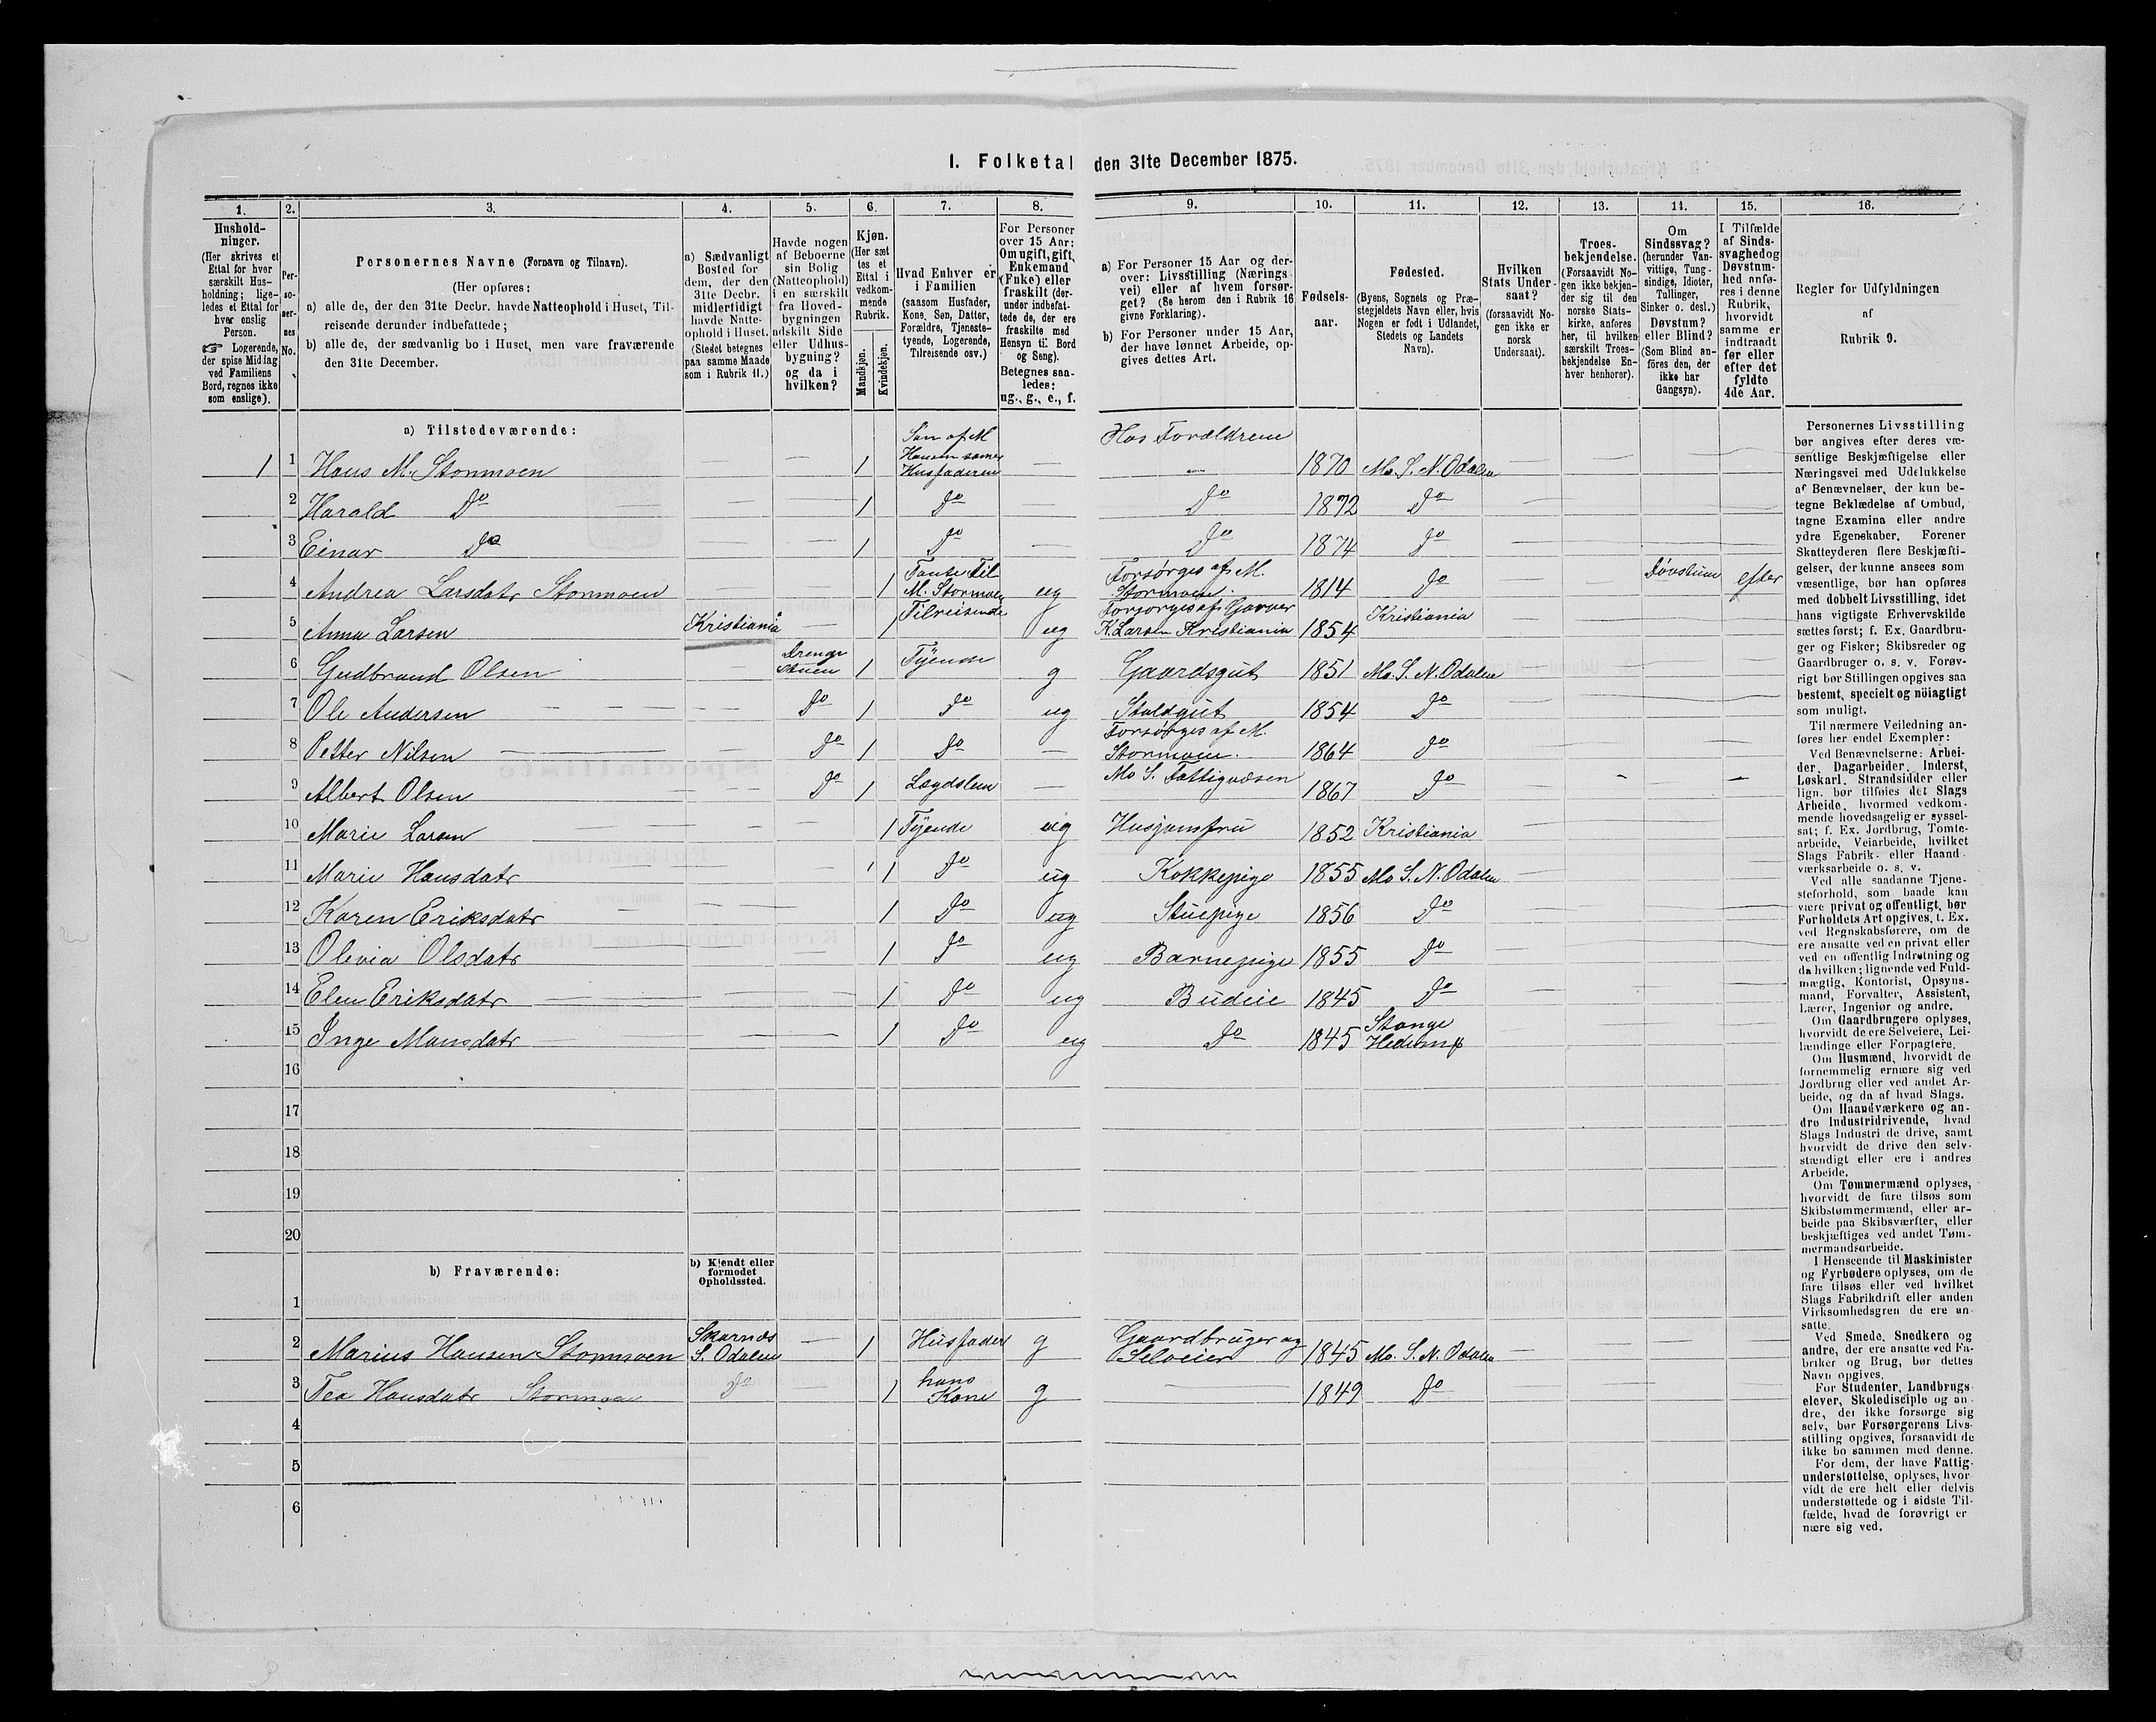 I. Folketal den 31te December 1875.
1. 2. 3. 4. 5. 6. 7. 8. 9. 10. 11. 12. 13. 14. 15. 16.
Hushold-
ninger.
(Her skrives et
Ettal for hver
særskilt Hus-
holdning; lige-
ledes et Ettal for
hver enslig
Person.
☞ Logerende,
der spise Middag
ved Familiens
Bord, regnes ikke
som enslige).
Per-
so-
ner-
nes
No.
Personernes Navne (Fornavn og Tilnavn).
(Her opføres:
a) alle de, der den 31te Decbr. havde Natteophold i Huset, Til-
reisende derunder indbefattede;
b) alle de, der sædvanlig bo i Huset, men vare fraværende
den 31te December.
a) Sædvanligt
Bosted for
dem, der den
31te Decbr.
midlertidigt
havde Natte-
ophold i Huset.
(Stedet betegnes
paa samme Maade
som i Rubrik 11.)
Havde nogen
af Beboerne
sin Bolig
(Natteophold)
i en særskilt
fra Hoved-
bygningen
adskilt Side
eller Udhus-
bygning?
og da i
hvilken?
Kjøn.
(Her sæt
tes et
Ettal i
vedkom-
mende
Rubrik.
Mandkjøn.
Kvindekjøn.
Hvad Enhver er
i Familien
(saasom Husfader,
Kone, Søn, Datter,
Forældre, Tjeneste-
tyende, Logerende,
Tilreisende osv.)
For Personer
over 15 Aar:
Om ugift, gift,
Enkemand
(Enke) eller
fraskilt (der-
under indbefat-
tede de, der ere
fraskilte med
Hensyn til Bord
og Seng).
Betegnes saa-
ledes:
ug., g., e., f.
a) For Personer 15 Aar og der-
over: Livsstilling (Nærings
vei) eller af hvem forsør-
get? (Se herom den i Rubrik 16
givne Forklaring).
b) For Personer under 15 Aar,
der have lønnet Arbeide, op-
gives dettes Art.
Fødsels-
aar.
Fødested.
(Byens, Sognets og Præ-
stegjeldets Navn eller, hvis
Nogen er født i Udlandet,
Stedets og Landets
Navn).
Hvilken
Stats Under-
saat?
(forsaavidt No-
gen ikke er
norsk
Undersaat).
Troes-
bekjendelse.
(Forsaavidt No-
gen ikke bekjen-
der sig til den
norske Stats-
kirke, anføres
her, til hvilken
særskilt Troes-
bekjendelse En-
hver henhører).
Om
Sindssvag?
(herunder Van-
vittige, Tung-
sindige, Idioter,
Tullinger,
Sinker o. desl.)
Døvstum?
eller Blind?
(Som Blind an-
føres den, der
ikke har
Gangsyn).
I Tilfælde
af Sinds-
svaghed og
Døvstum-
hed anfø-
res i denne
Rubrik,
hvorvidt
samme er
indtraadt
før eller
efter det
fyldte
4de Aar.
Regler for Udfyldningen
af
Rubrik 9.
a) Tilstedeværende:
1 1 Hans M. Stormoen — — 1 Søn af M Hansen som er Husfaderen — Hos Forældrene 1870 Mo S. N. Odalen
2 Harald Do 1 Do Do 1872 Do
3 Einar Do 1 Do Do 1874 Do
4 Andrea Larsdatr Stormoen 1 Tante til M. Stormoen ug Forsørges af M. Stormoen. 1814 Do Døvstum efter
5 Anna Larsen Kristiania 1 Tilreisende ug Forsørges af Garver K. Larsen Kristiania 1854 Kristiania
6 Gudbrand Olsen Drenge stuen 1 Tyende g Gaardsgut 1851 Mo S. N. Odalen
7 Ole Andersen Do 1 Do ug Staldgut 1854 Do
8 Petter Nilsen Do 1 Do — Forsørges af M. Stormoen. 1864 Do
9 Albert Olsen Do 1 Lægdslem — Mo S. Fattigvæsen 1867 Do
10 Marie Larsen 1 Tyende ug Husjomfru 1852 Kristiania
11 Marie Hansdatr 1 Do ug Kokkepige 1855 Mo S. N. Odalen
12 Karen Eriksdatr 1 Do ug Stuepige 1856 Do
13 Olivia Olsdatr 1 Do ug Barnepige 1855 Do
14 Elen Eriksdatr 1 Do ug Budeie 1845 Do
15 Inge Monsdatr 1 Do ug Do 1845 Stange Hedem
16
17
18
19
20
b) Fraværende:
b) Kjendt eller
formodet
Opholdssted.
1
2 Marius Hansen Stormoen Skarnæs S. Odalen 1 Husfader g Gaardbruger og Selveier 1845 Mo. S. N. Odalen
3 Tea Hansdatr Stormoen Do 1 hans Kone g 1849 Do
4
5
6
Personernes Livsstilling
bør angives efter deres væ-
sentlige Beskjæftigelse eller
Næringsvei med Udelukkelse
af Benævnelser, der kun be-
tegne Beklædelse af Ombud,
tagne Examina eller andre
ydre Egenskaber. Forener
Skatteyderen flere Beskjæfti-
gelser, der kunne ansees som
væsentlige, bør han opføres
med dobbelt Livsstilling, idet
hans vigtigste Erhvervskilde
sættes først; f. Ex. Gaardbru-
ger og Fisker; Skibsreder og
Gaardbruger o. s. v. Forøv-
rigt bør Stillingen opgives saa
bestemt, specielt og nöiagtigt
som muligt.
Til nærmere Veiledning an-
føres her endel Exempler:
Ved Benævnelserne: Arbei-
der, Dagarbeider, Inderst,
Løskarl, Strandsidder eller
lign. bør tilføies det Slags
Arbeide, hvormed vedkom-
mende hovedsagelig er syssel-
sat; f. Ex. Jordbrug, Tomte-
arbeide, Veiarbeide, hvilket
Slags Fabrik- eller Haand-
værksarbeide o. s. v.
Ved alle saadanne Tjene-
steforhold, som baade kan
være privat og offentligt, bør
Forholdets Art opgives, t. Ex.
ved Regnskabsførere, om de
ere ansatte ved en privat eller
ved en offentlig Indretning og
da hvilken; lignende ved Fuld-
mægtig, Kontorist, Opsyns-
mand, Forvalter, Assistent,
Lærer, Ingeniør og andre.
Om Gaardbrugere oplyses,
hvorvidt de ere Selveiere, Lei-
lændinge eller Forpagtere.
Om Husmænd, hvorvidt de
fornemmelig ernære sig ved
Jordbrug eller ved andet Ar-
beide, og da af hvad Slags.
Om Haandværkere og an-
dre Industridrivende, hvad
Slags Industri de drive, samt
hvorvidt de drive den selv-
stændigt eller ere i andres
Arbeide.
Om Tømmermænd oplyses,
hvorvidt de fare tilsøs som
Skibstømmermænd, eller ar-
beide paa Skibsværfter, eller
beskjæftiges ved andet Tøm-
mermandsarbeide.
I Henseende til Maskinister
og Fyrbødere oplyses, om de
fare tilsøs eller ved hvilket
Slags Fabrikdrift eller anden
Virksomhedsgren de ere an-
satte.
Ved Smede, Snedkere og
andre, der ere ansatte ved Fa-
briker og Brug, bør dettes
Navn opgives.
For Studenter, Landbrugs-
elever, Skoledisciple og an-
dre, der ikke forsørge sig
selv, bør Forsørgerens Livs-
stilling opgives, forsaavidt de
ikke bo sammen med denne.
For dem, der have Fattig-
understøttelse, oplyses, hvor-
vidt de ere helt eller delvis
understøttede og i sidste Til-
fælde, hvad de forøvrigt er
nære sig ved.